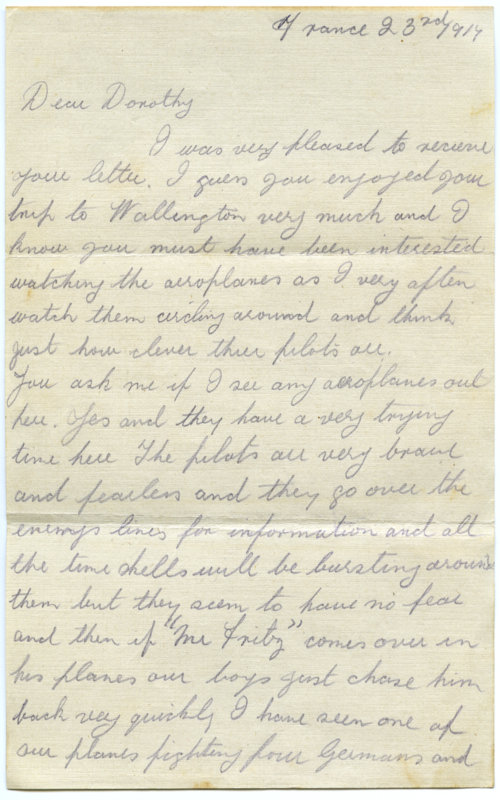 France 23rd/1917
Dear Dorothy
I was very pleased to recieve
your letter. I guess you enjoyed your
trip to Wallington very much and I
know you must have been interested
watching the aeroplanes as I very often
watch them circling around and think
just how clever their pilots are.
You ask me if I see any aeroplanes out
here. Yes and they have a very trying
time here The pilots are very brave
and fearless and they go over the
enemys lines for information and all
the time shells will be bursting around
them but they seem to have no fear
and then if "Mr Fritz" comes over in
his planes our boys just chase him
back very quickly I have seen one of
our planes fighting four Germans and